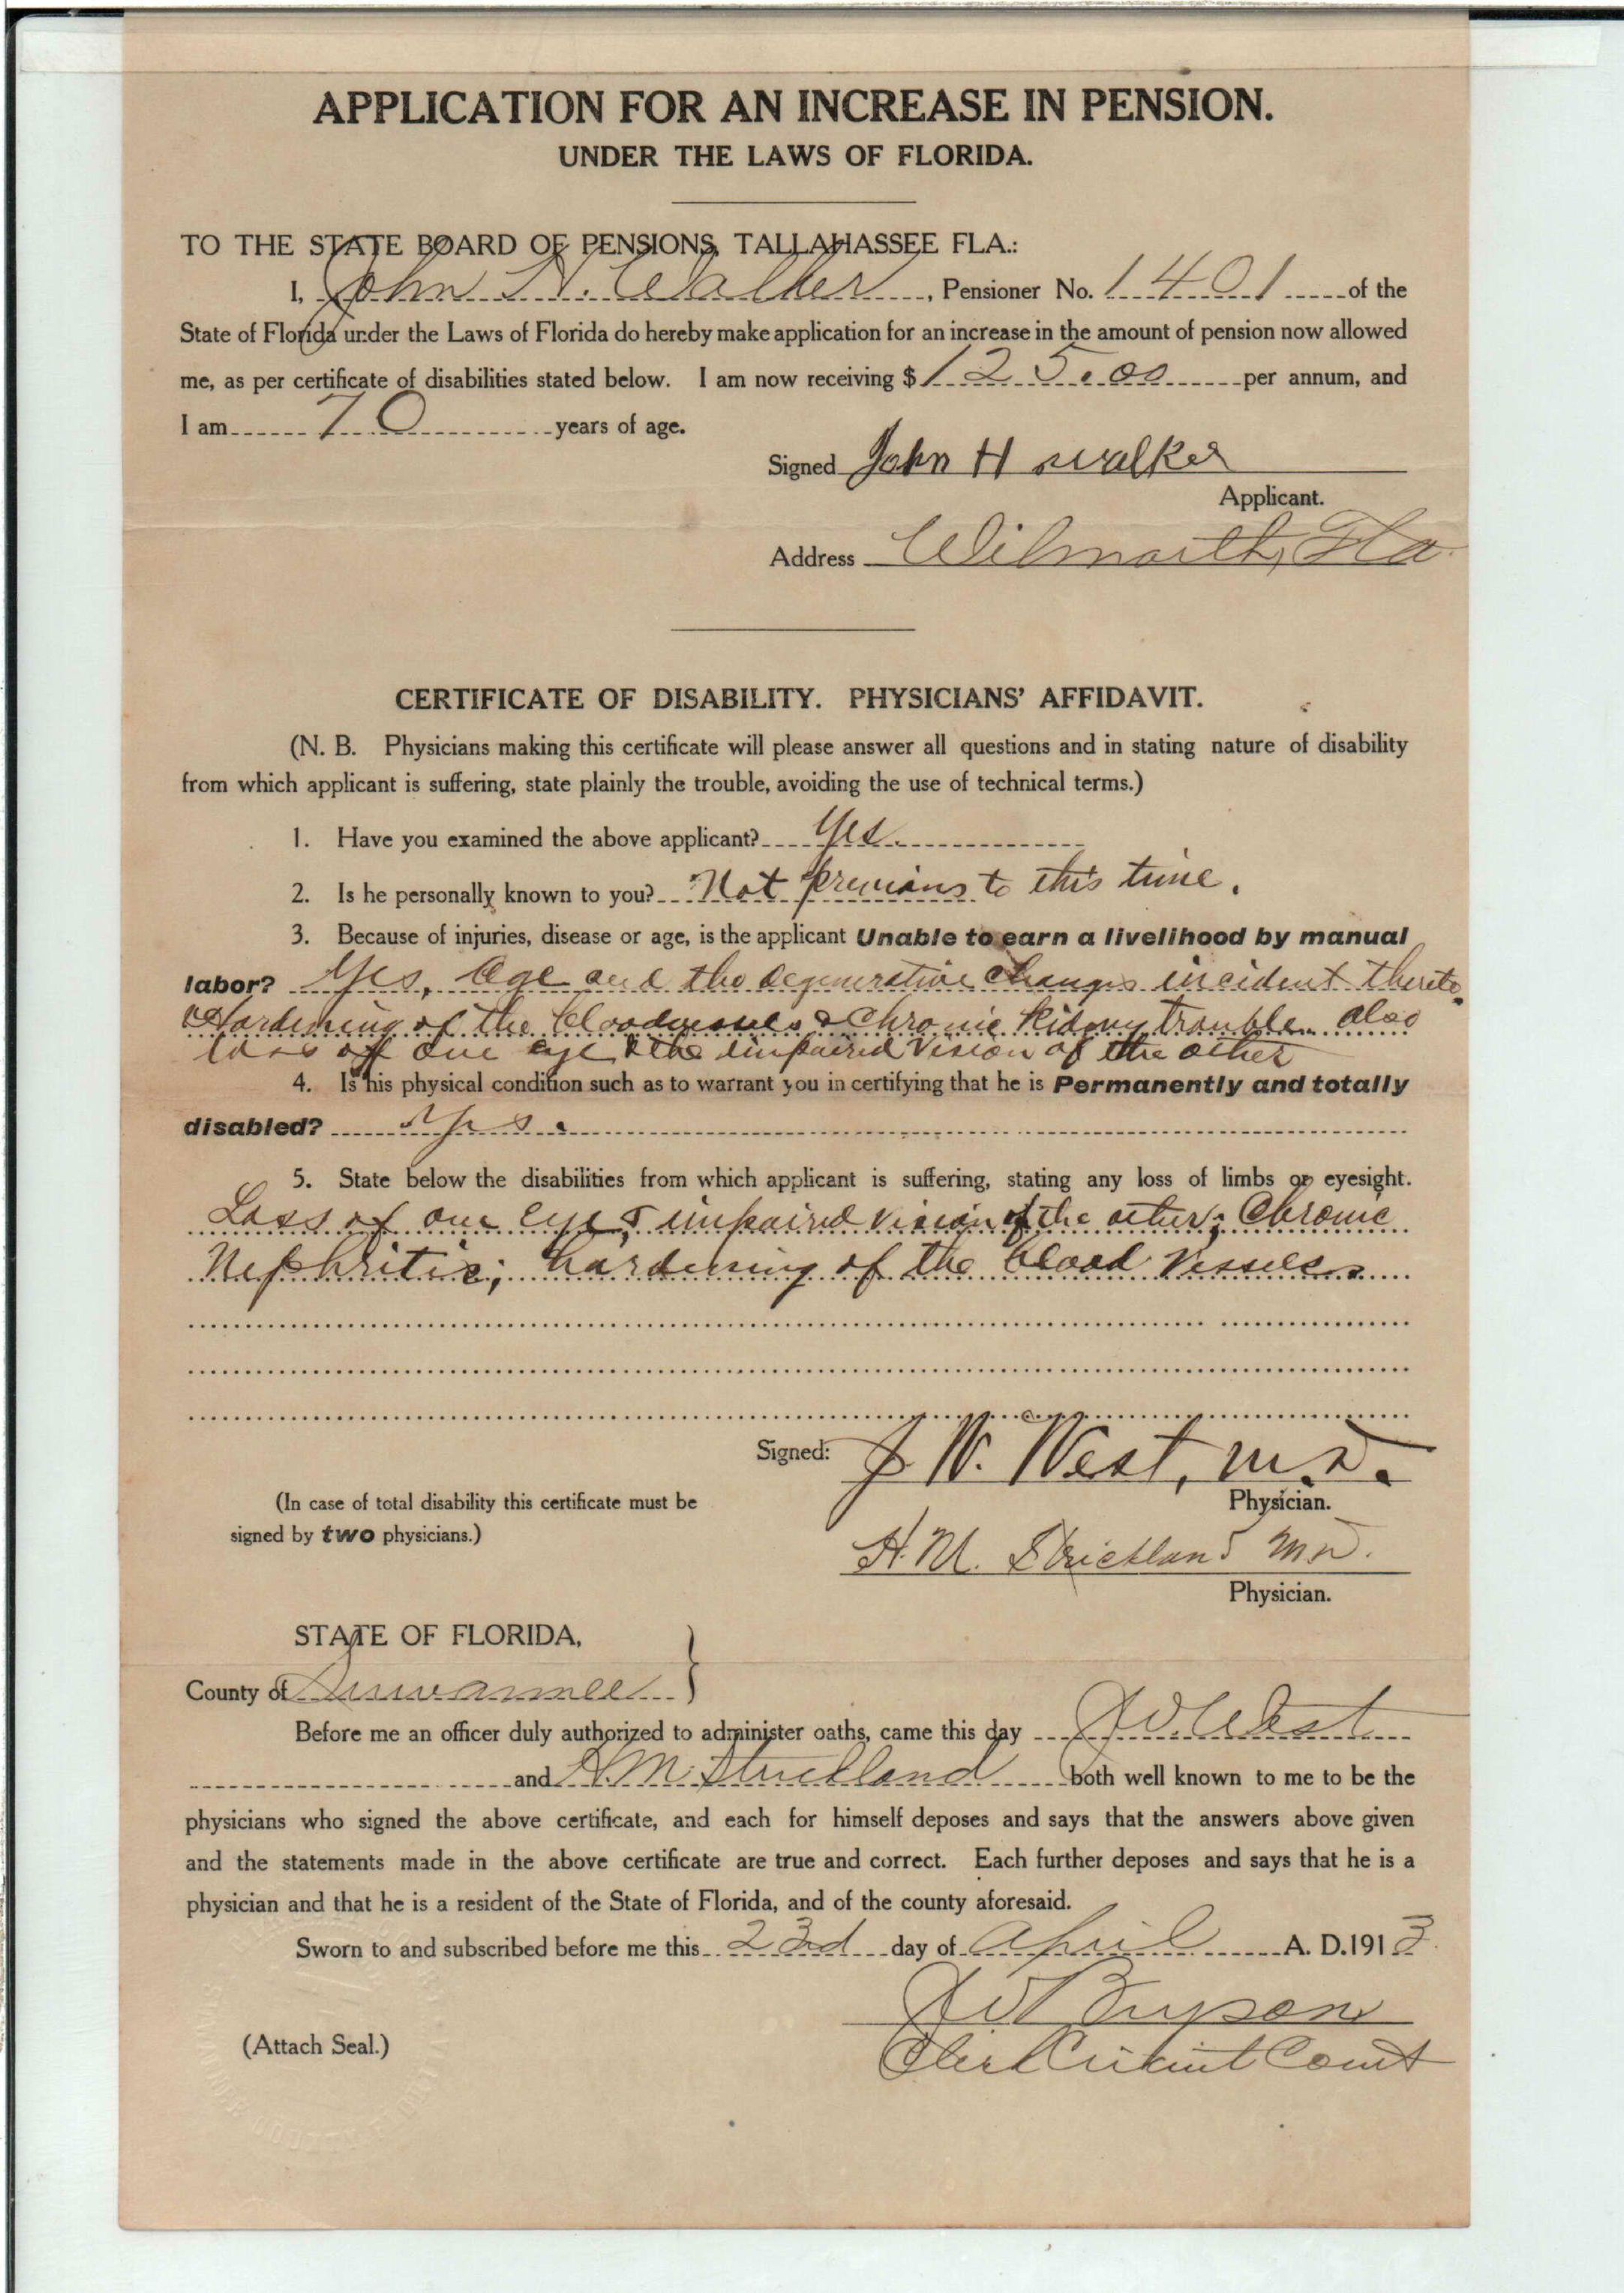 APPLICATION FOR AN INCREASE IN PENSION.
UNDER THE LAWS OF FLORIDA.
TO THE STATE BOARD OF PENSIONS, TALLAHASSEE FLA.:
I, John H. Walker, Pensioner No. 1401 of the
State of Florida under the Laws of Florida do hereby make application for an increase in the amount of pension now allowed
me, as per certificate of disabilities stated below. I am now receiving $125.00 per annum, and
I am 70 years of age.
Signed John H Walker
Applicant.
Address Wilmarth, Fla.
CERTIFICATE OF DISABILITY. PHYSICIANS' AFFIDAVIT.
(N. B. Physicians making this certificate will please answer all questions and in stating nature of disability
from which applicant is suffering, state plainly the trouble, avoiding the use of technical terms.)
1. Have you examined the above applicant? Yes.
2. Is he personally known to you? Not previous to this time.
3. Because of injuries, disease or age, is the applicant Unable to earn a livelihood by manual
labor? Yes, Age and the degenerative changes incident thereto.
Hardening of the bloodvessels & Chronic Kidney trouble also
loss of one eye & the impaired vision of the other
4. Is his physical condition such as to warrant you in certifying that he is Permanently and totally
disabled? Yes.
5. State below the disabilities from which applicant is suffering, stating any loss of limbs or eyesight.
Loss of one eye, & impaired vision of the other; Chronic
Nephritis; hardening of the blood vessels
Signed: J W. West, M.D.
Physician.
(In case of total disability this certificate must be
signed by two physicians.)
H. M. Strickland MD.
Physician.
STATE OF FLORIDA,
County of Suwannee }
Before me an officer duly authorized to administer oaths, came this day J W. West
and H. M Strickland both well known to me to be the
physicians who signed the above certificate, and each for himself deposes and says that the answers above given
and the statements made in the above certificate are true and correct. Each further deposes and says that he is a
physician and that he is a resident of the State of Florida, and of the county aforesaid.
Sworn to and subscribed before me this 23rd day of April A. D. 1913.
J W Bryson
Clerk Circuit Court
(Attach Seal.)